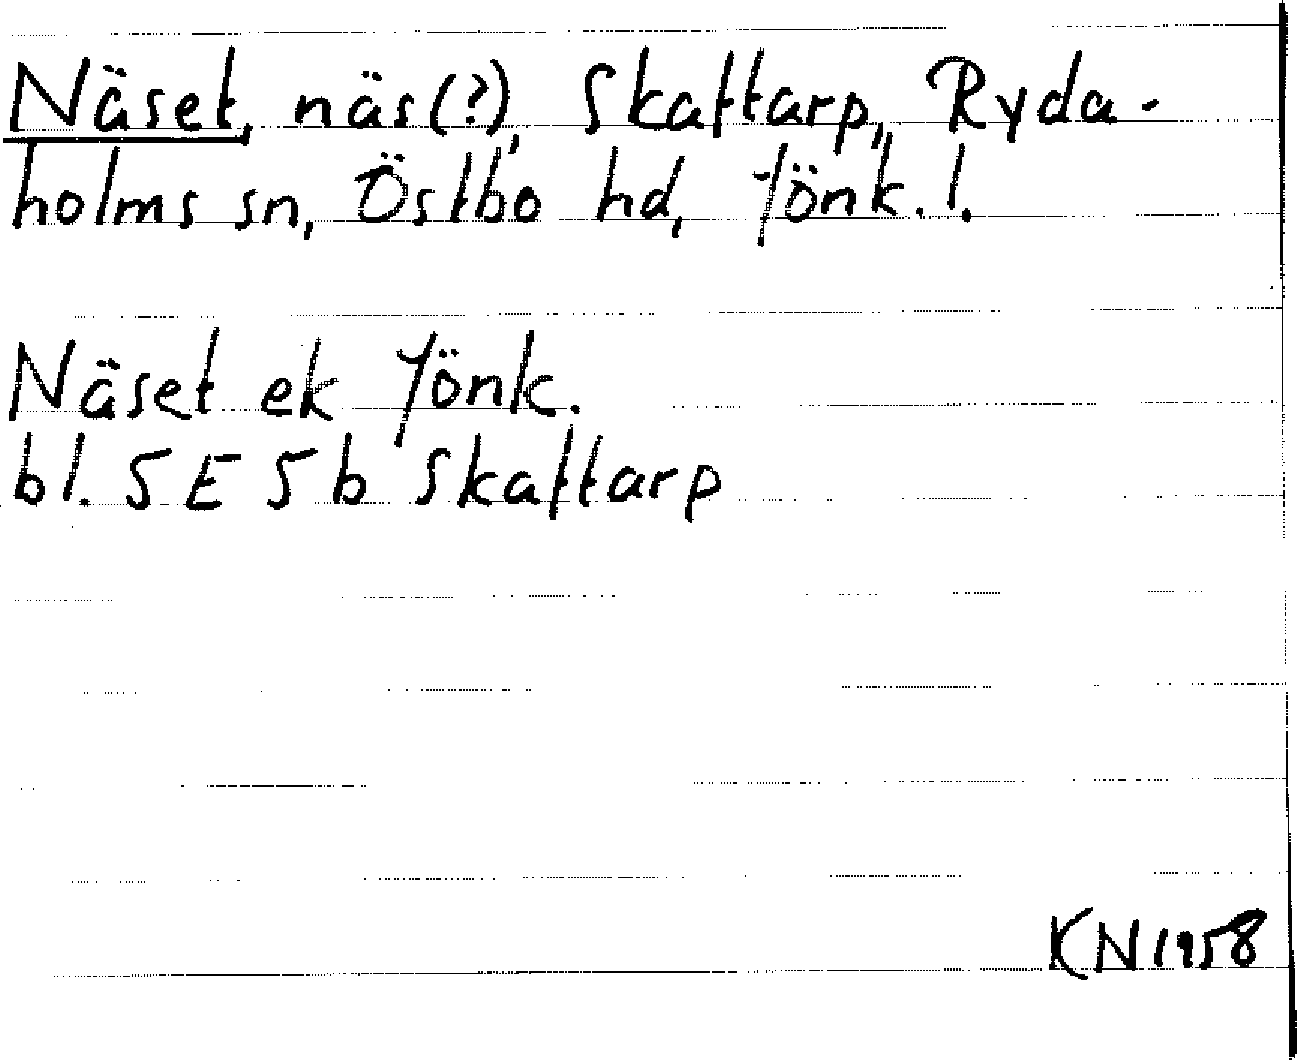 Näset, näs(?), Skaftarp, Ryda-
holms sn, Östbo hd, Jönk. l.
Näset ek Jönk.
bl. 5E 5b Skaftarp
KN 1958